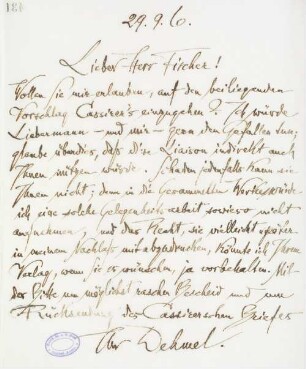 29.9.6.
Lieber Herr Fischer!
Wollen Sie mir erlauben, auf den beiliegenden
Vorschlag Cassirer's einzugehen? Ich würde
Liebermann – und mir – gern den Gefallen tun;
glaube überdies, daß diese Liaison indirekt auch
Ihnen nützen würde. Schaden jedenfalls kann sie
Ihnen nicht; denn in die Gesammelten Werke würde
ich eine solche Gelegenheitsarbeit sowieso nicht
aufnehmen, und das Recht, sie vielleicht später
in meinem Nachlaß mit abzudrucken, könnte ich Ihrem
Verlag, wenn Sie es wünschen, ja vorbehalten. Mit
der Bitte um möglichst raschen Bescheid und um
Rücksendung des Cassirerschen Briefes
Ihr Dehmel.